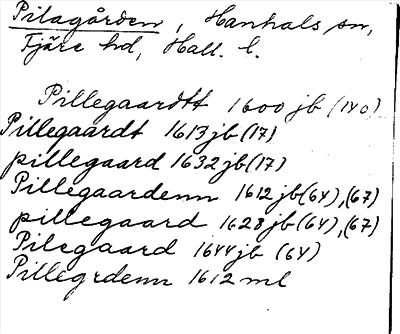 Pilagården, Hanhals sn,
Fjäre hd, Hall. l.
Pillegaardtt 1600 jb (140)
Pillegaardt 1613 jb (17)
pillegaard 1632 jb (17)
Pillegaardenn 1612 jb (64), (67)
pillegaard 1628 jb (64), (67)
Pilegaard 1644 jb (64)
Pillegrdenn 1612 ml